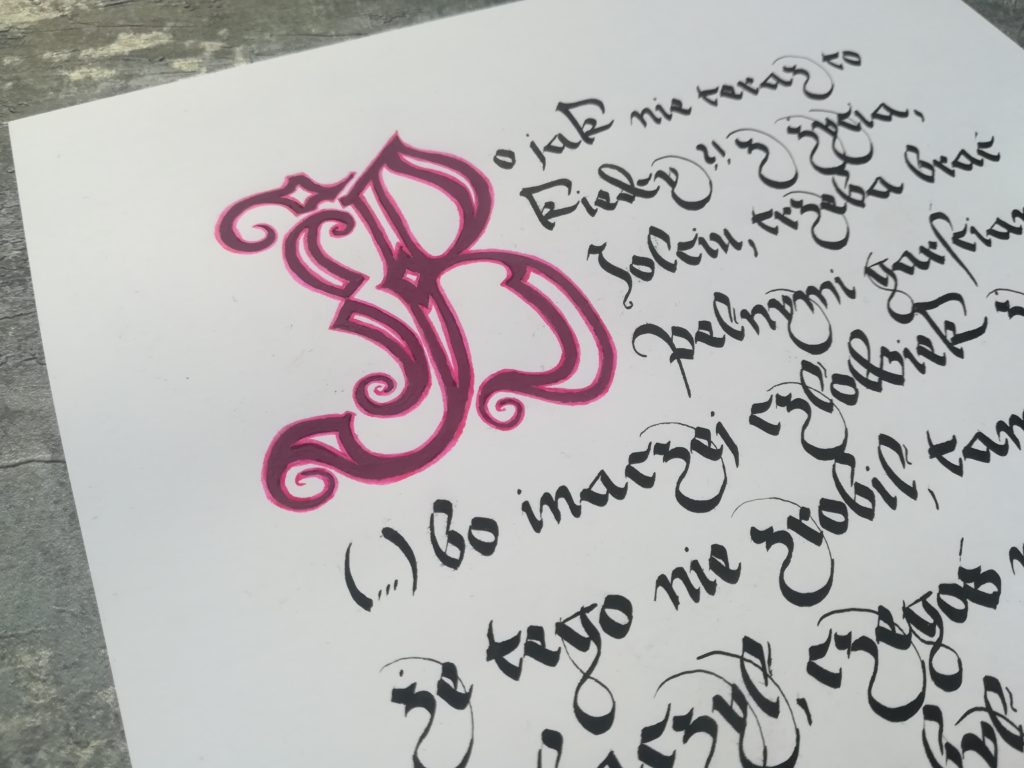 Bo jak nie teraz to
kiedy?! Z życia,
Jolciu, trzeba brać
pełnymi garściami
(...) bo inaczej człowiek ż
że tego nie zrobił, tam
czegoś